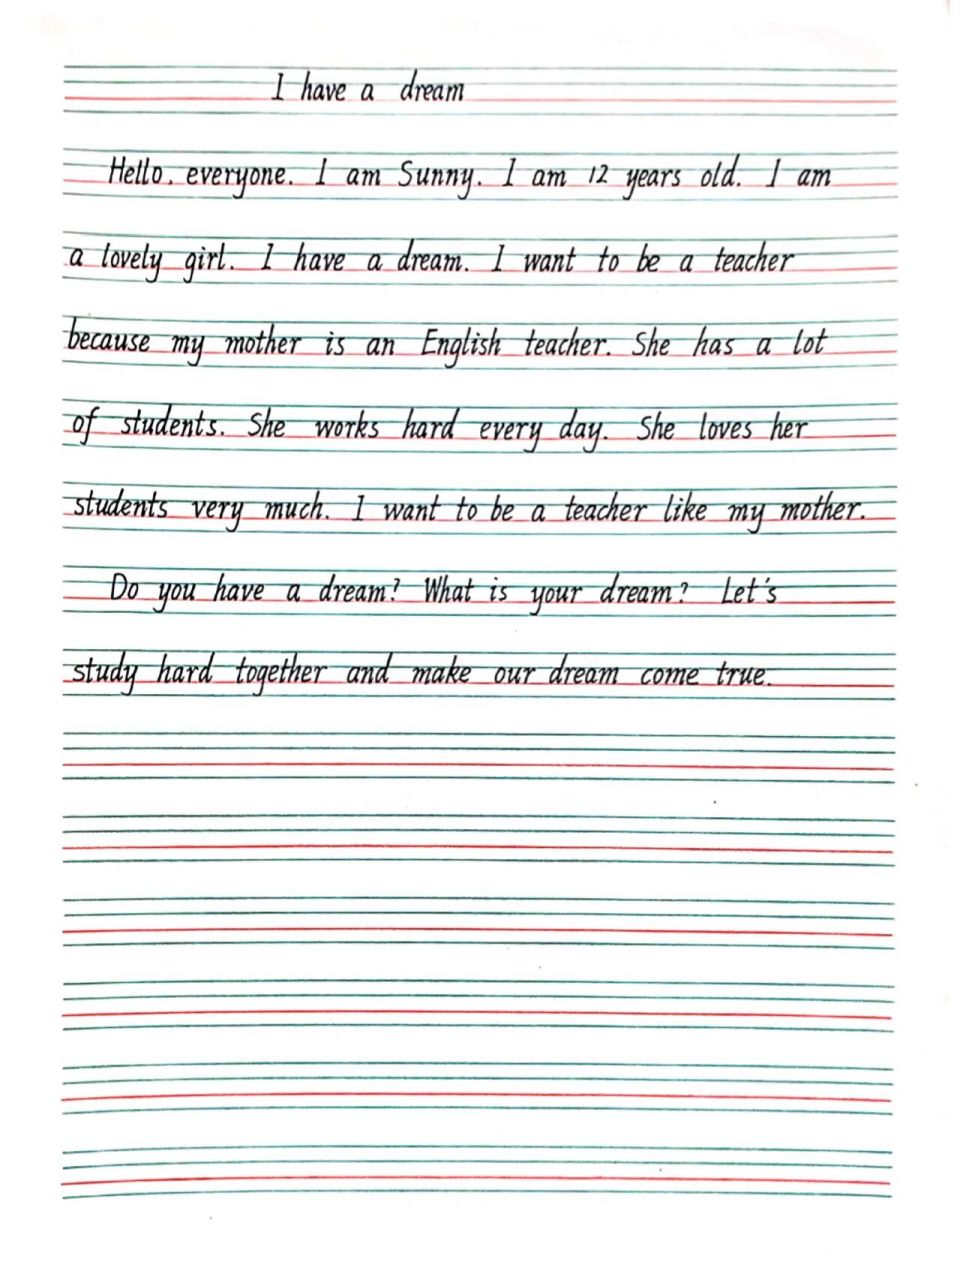 I have a dream
Hello, everyone. I am Sunny. I am 12 years old. I am
a lovely girl. I have a dream. I want to be a teacher
because my mother is an English teacher. She has a lot
of students. She works hard every day. She loves her
students very much. I want to be a teacher like my mother.
Do you have a dream? What is your dream? Let's
study hard together and make our dream come true.